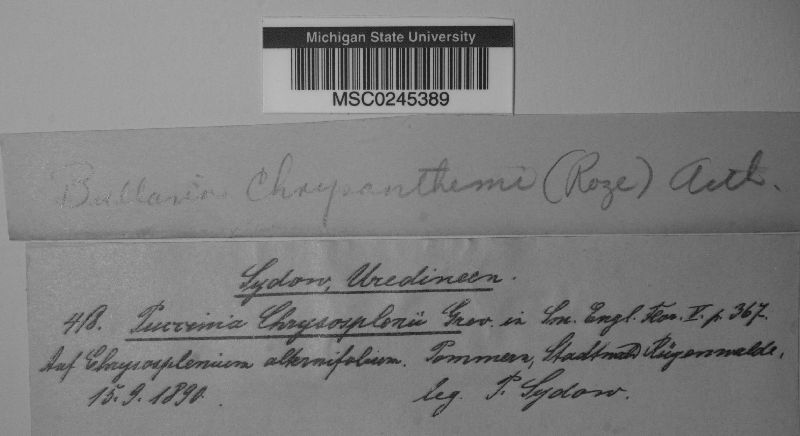 Michigan State University
MSC0245389
Bullaria Chrysanthemi (Roze) Arth.
Sydow, Uredineen.
418. Puccinia Chrysosplenii Grev. in Sm. Engl. Flor. V. p. 367.
Auf Chrysosplenium alternifolium. Pommern, Stadtwald Rügenwalde,
15. 9. 1890. leg. P. Sydow.